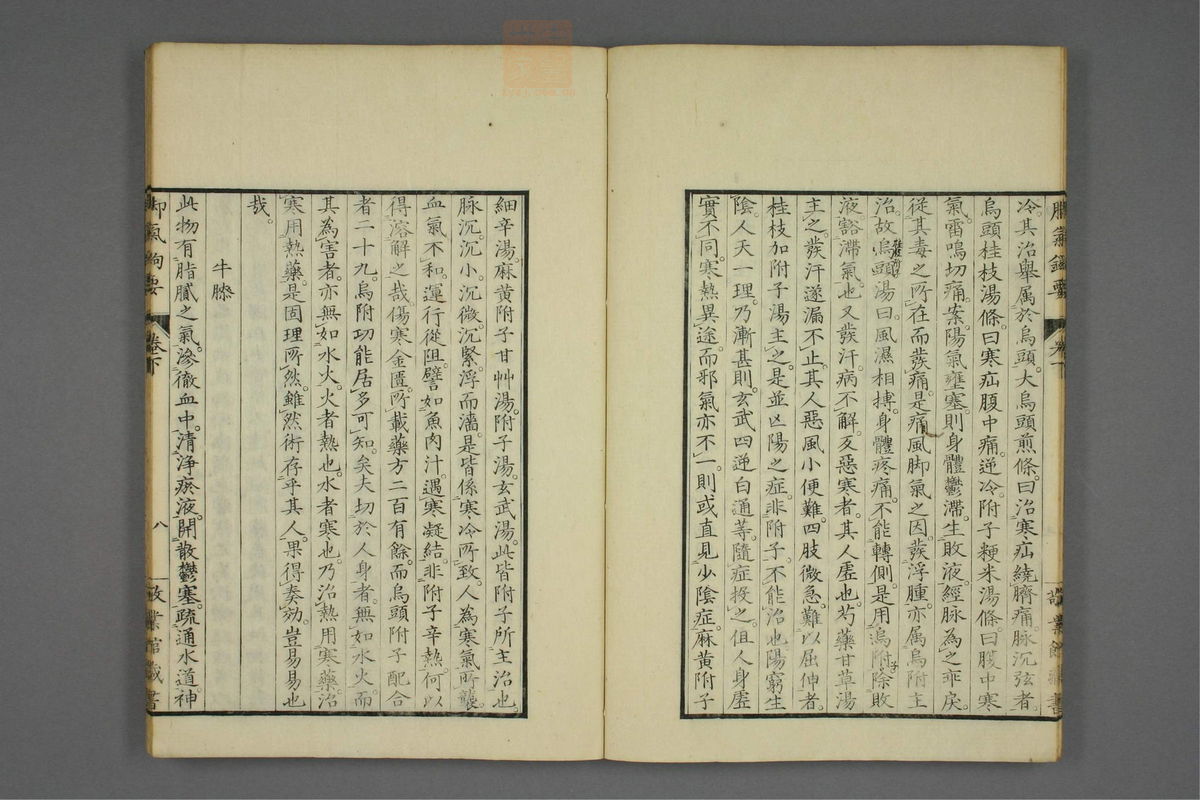 冷。其治舉属於烏頭。大烏頭煎條。曰治寒疝繞臍痛。脈沉弦者。
烏頭桂枝湯條。曰寒疝腹中痛。逆冷。附子粳米湯條。曰腹中寒
氣。雷鳴切痛。案。陽氣壅塞。則身體鬱滯。生敗液。經脉為之乖戾。
從其毒之所在而發痛。是痛風脚氣之因。發浮腫。亦属烏附主
治。故烏頭湯曰。風濕相摶。身體疼痛。不能轉側。是用烏附。除敗
液。豁滯氣也。又發汗。病不解。反惡寒者。其人虛也。芍藥甘草湯
主之。發汗遂漏不止。其人惡風小便難。四肢微急。難以屈伸者。
桂枝加附子湯主之。是並亡陽之症。非附子。不能治也。陽窮生
陰。人天一理。乃漸甚則。玄武四逆白通等。隨症投之。但人身虛
實不同。寒熱異途。而邪氣亦不一。則或直見少陰症。麻黃附子
脚氣鉤要
卷下
細辛湯。麻黃附子甘艸湯。附子湯。玄武湯。此皆附子所主治也。
脉沉沉小。沉微。沉緊。浮而濇。是皆係寒冷所致。人為寒氣所襲。
血氣不和。運行從阻。譬如魚肉汁遇寒凝結。非附子辛熱。何以
得溶解之哉。傷寒金匱。所載藥方二百有餘。而烏頭附子配合
者二十九。烏附功能居多可知矣。夫切於人身者。無如水火。而
其為害者。亦無如水火。火者熱也。水者寒也。乃治熱用寒藥。治
寒用熱藥。是固理所然。雖然術存乎其人。果得奏効。豈易易也
哉。
牛膝
此物有脂膩之氣。滲徹血中。清淨瘀液。開散鬱塞。疏通水道。神
脚氣鉤要
卷下
八